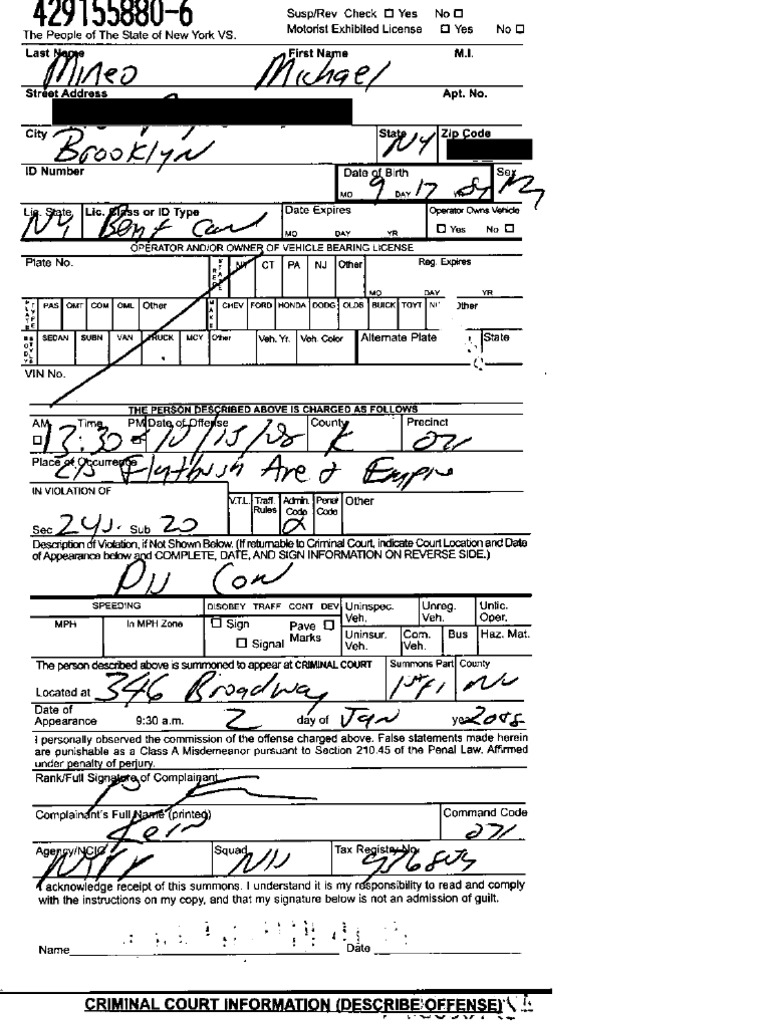 429155880-6
Susp/Rev Check ☐ Yes No ☐
The People of The State of New York VS.
Motorist Exhibited License ☐ Yes No ☐
Last Name First Name M.I.
Mineo Michael
Street Address Apt. No.
City State Zip Code
Brooklyn NY
ID Number Date of Birth Sex
MO 9 DAY 17 M
Lic. State Lic. Class or ID Type Date Expires Operator Owns Vehicle
NY MO DAY YR ☐ Yes No ☐
OPERATOR AND/OR OWNER OF VEHICLE BEARING LICENSE
Plate No. NY CT PA NJ Other Reg. Expires
MO DAY YR
PLATE TYPE PAS OMT COM OML Other MAKE CHEV FORD HONDA DODG OLDS BUICK TOYT Other
BODY STYLE SEDAN SUBN VAN TRUCK MCY Other Veh. Yr. Veh. Color Alternate Plate State
VIN No.
THE PERSON DESCRIBED ABOVE IS CHARGED AS FOLLOWS
AM Time PM Date of Offense County Precinct
☐ 13:30 10/15/08 K
Place of Occurrence
Flatbush Ave & Empire
IN VIOLATION OF V.T.L. Traff. Rules Admin. Code Penal Code Other
Sec Sub 20
Description of Violation, if Not Shown Below. (If returnable to Criminal Court, indicate Court Location and Date
of Appearance below and COMPLETE, DATE, AND SIGN INFORMATION ON REVERSE SIDE.)
Con
SPEEDING DISOBEY TRAFF CONT DEV Uninspec. Veh. Unreg. Veh. Unlic. Oper.
MPH In MPH Zone ☐ Sign Pave Marks ☐ ☐ Signal Uninsur. Veh. Com. Veh. Bus Haz. Mat.
The person described above is summoned to appear at CRIMINAL COURT Summons Part County
Located at 346 Broadway
Date of
Appearance 9:30 a.m. 2 day of Jan year 2008
I personally observed the commission of the offense charged above. False statements made herein
are punishable as a Class A Misdemeanor pursuant to Section 210.45 of the Penal Law. Affirmed
under penalty of perjury.
Rank/Full Signature of Complainant
Complainant's Full Name (printed) Command Code
Agency/NCIC Squad Tax Registry No.
I acknowledge receipt of this summons. I understand it is my responsibility to read and comply
with the instructions on my copy, and that my signature below is not an admission of guilt.
Name Date
CRIMINAL COURT INFORMATION (DESCRIBE OFFENSE)